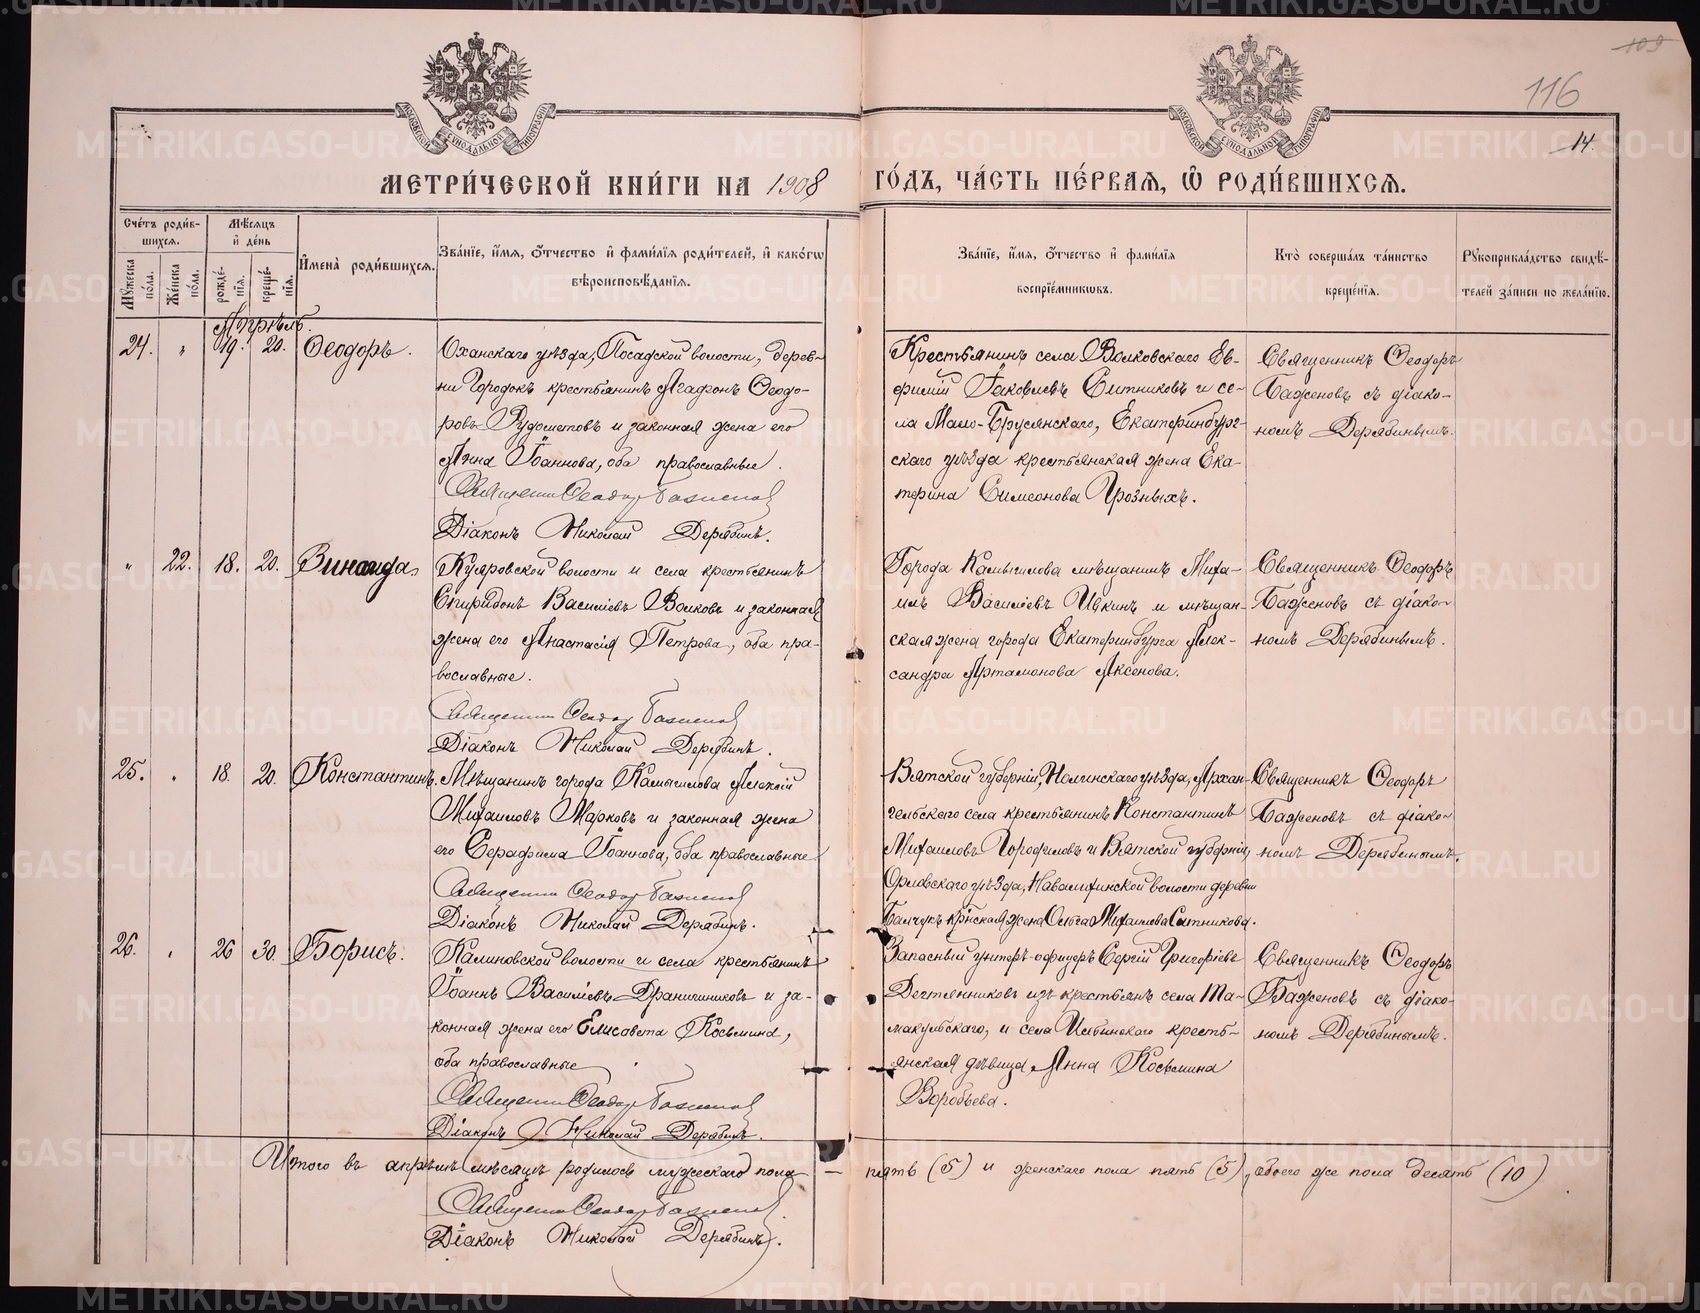 109
116
14.
МОСКОВСКОЙ СѴНОДАЛЬНОЙ ТИПОГРАФІИ
МОСКОВСКОЙ СѴНОДАЛЬНОЙ ТИПОГРАФІИ
МЕТРИ́ЧЕСКОЙ КНИ́ГИ НА 1908 ГО́ДЪ, ЧА́СТЬ ПЕ́РВАЯ, Ѡ РОДИ́ВШИХСѦ.
Сче́тъ роди́вшихсѧ.
Му́жеска по́ла.
Же́нска по́ла.
Мѣ́сѧцъ и҆ де́нь
рожде́нїѧ.
креще́нїѧ.
И҆мена̀ роди́вшихсѧ.
Зва́нїе, и҆́мѧ, ѻ҆́тчество и҆ фами́лїѧ роди́телей, и҆ како́гѡ
вѣроисповѣ́данїѧ.
Зва́нїе, и҆́мѧ, ѻ҆́тчество и҆ фами́лїѧ
воспрїе́мникѡвъ.
Кто̀ соверша́лъ та́инство
креще́нїѧ.
Рꙋкоприкла́дство свидѣ́-
телей за́писи по жела́нїю.
Апрѣль.
24. " 19. 20. Ѳеодоръ.
Оханскаго уѣзда, Посадской волости, дерев-
ни Городокъ крестьянинъ Агафонъ Ѳеодо-
ровъ Рудометовъ и законная жена его
Анна Іоаннова, оба православные.
Священникъ Ѳеодоръ Баженовъ
Діаконъ Николай Дерябинъ.
Крестьянинъ села Волковскаго Ев-
фимій Іаковлевъ Ситниковъ и се-
ла Мало-Брусянскаго, Екатеринбург-
скаго уѣзда крестьянская жена Ека-
терина Симеонова Грозныхъ.
Священникъ Ѳеодоръ
Баженовъ съ діако-
номъ Дерябинымъ.
" 22. 18. 20. Зинаида.
Куяровской волости и села крестьянинъ
Спиридонъ Василіевъ Волковъ и законная
жена его Анастасія Петрова, оба пра-
вославные.
Священникъ Ѳеодоръ Баженовъ
Діаконъ Николай Дерябинъ.
Города Камышлова мѣщанинъ Миха-
илъ Василіевъ Ивкинъ и мѣщан-
ская жена города Екатеринбурга Алек-
сандра Артамонова Аксенова.
Священникъ Ѳеодоръ
Баженовъ съ діако-
номъ Дерябинымъ.
25. " 18. 20. Константинъ.
Мѣщанинъ города Камышлова Алексій
Михаиловъ Марковъ и законная жена
его Серафима Іоаннова, оба православные
Священникъ Ѳеодоръ Баженовъ
Діаконъ Николай Дерябинъ.
Вятской губерніи, Нолинскаго уѣзда, Архан-
гельскаго села крестьянинъ Константинъ
Михаиловъ и Вятской губерніи,
Орловскаго уѣзда, волости деревни
жена Ольга Михаилова Ситникова.
Священникъ Ѳеодоръ
Баженовъ съ діако-
номъ Дерябинымъ.
26. " 26 30. Борисъ.
Калиновской волости и села крестьянинъ
Іоаннъ Василіевъ Драничниковъ и за-
конная жена его Елисавета Косьмина,
оба православные
Священникъ Ѳеодоръ Баженовъ
Діаконъ Николай Дерябинъ.
Запасный унтеръ-офицеръ Сергій Григоріевъ
Дегтянниковъ изъ крестьянъ села Та-
макульскаго, и села Ильинскаго кресть-
янская дѣвица Анна Косьмина
Воробьева.
Священникъ Ѳеодоръ
Баженовъ съ діако-
номъ Дерябинымъ.
Итого въ апрѣлѣ мѣсяцѣ родилось мужескаго пола — пять (5) и женскаго пола пять (5), обоего же пола десять (10)
Священникъ Ѳеодоръ Баженовъ.
Діаконъ Николай Дерябинъ.
METRIKI.GASO-URAL.RU